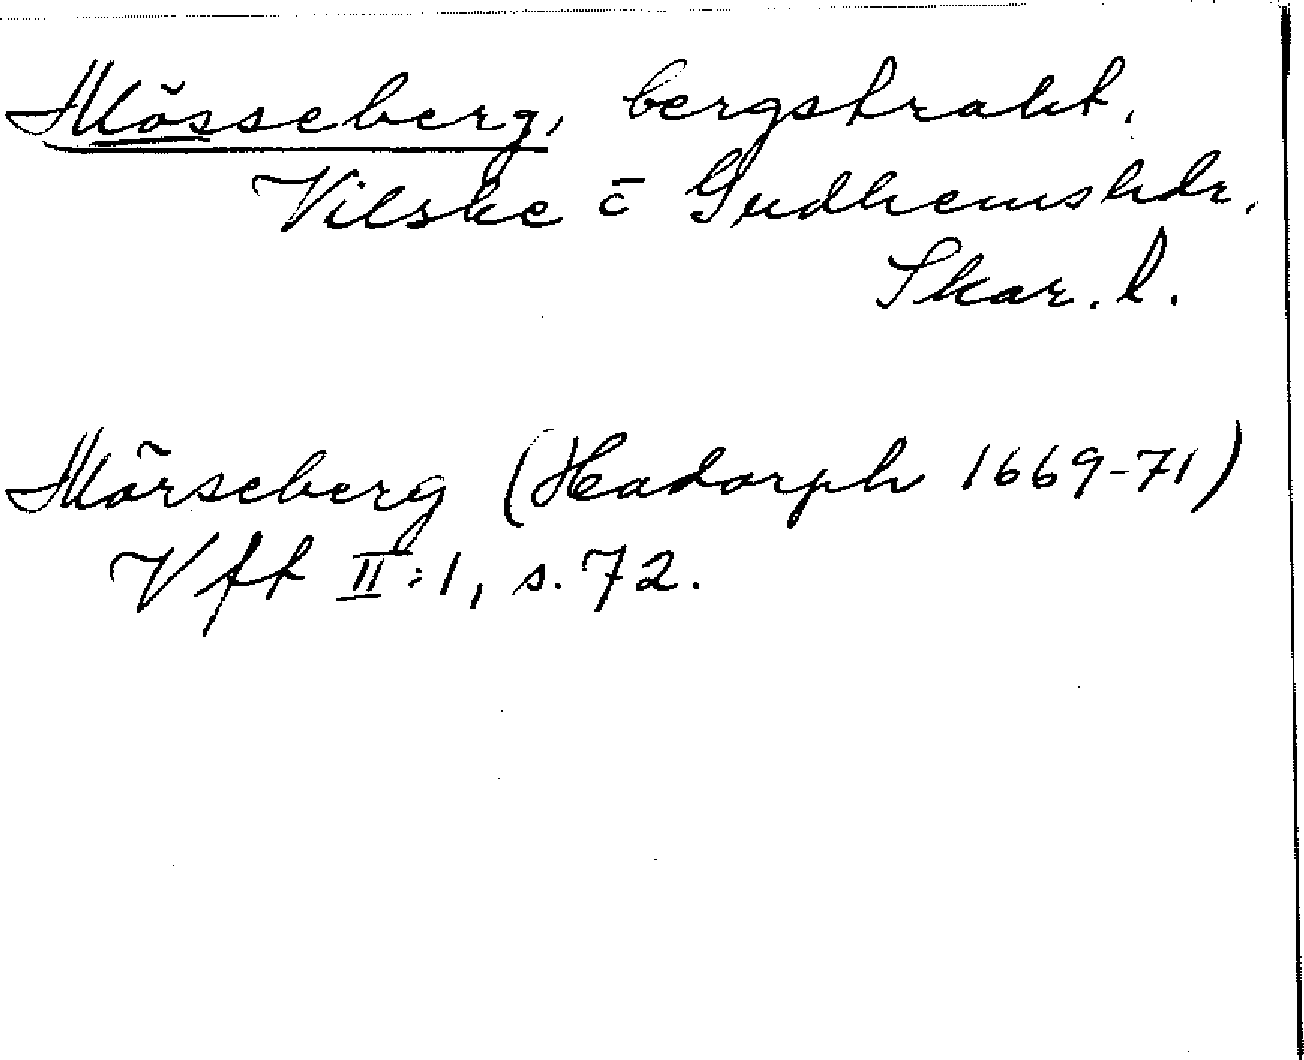 Mösseberg, bergstrakt,
Vilske o Gudhemshdr,
Skar. l.
Mörseberg (Hadorph 1669-71)
Vft II:1, s. 72.